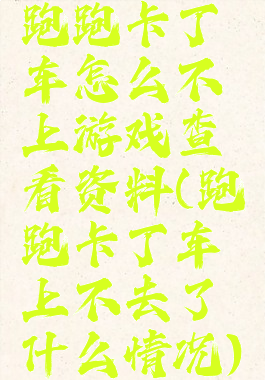 跑跑卡丁
车怎么不
上游戏查
看资料(跑
跑卡丁车
上不去了
什么情况)